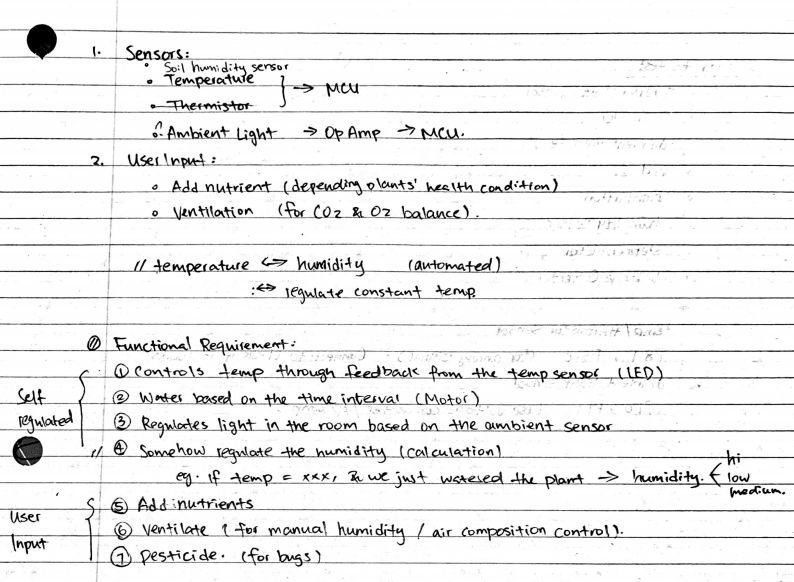 1. Sensors:
• Soil humidity sensor
• Temperature
• Thermistor
} → MCU
• Ambient Light → Op Amp → MCU.
2. User Input:
• Add nutrient (depending plants' health condition)
• Ventilation (for CO2 & O2 balance).
// temperature ↔ humidity (automated)
:↔ regulate constant temp.
Functional Requirement:
Self regulated
① Controls temp through feedback from the temp sensor (LED)
② Water based on the time interval (Motor)
③ Regulates light in the room based on the ambient sensor
// ④ Somehow regulate the humidity (calculation)
eg. if temp = xxx, & we just watered the plant → humidity. { hi low medium.
User Input
⑤ Add nutrients
⑥ Ventilate (for manual humidity / air composition control).
⑦ Pesticide. (for bugs)